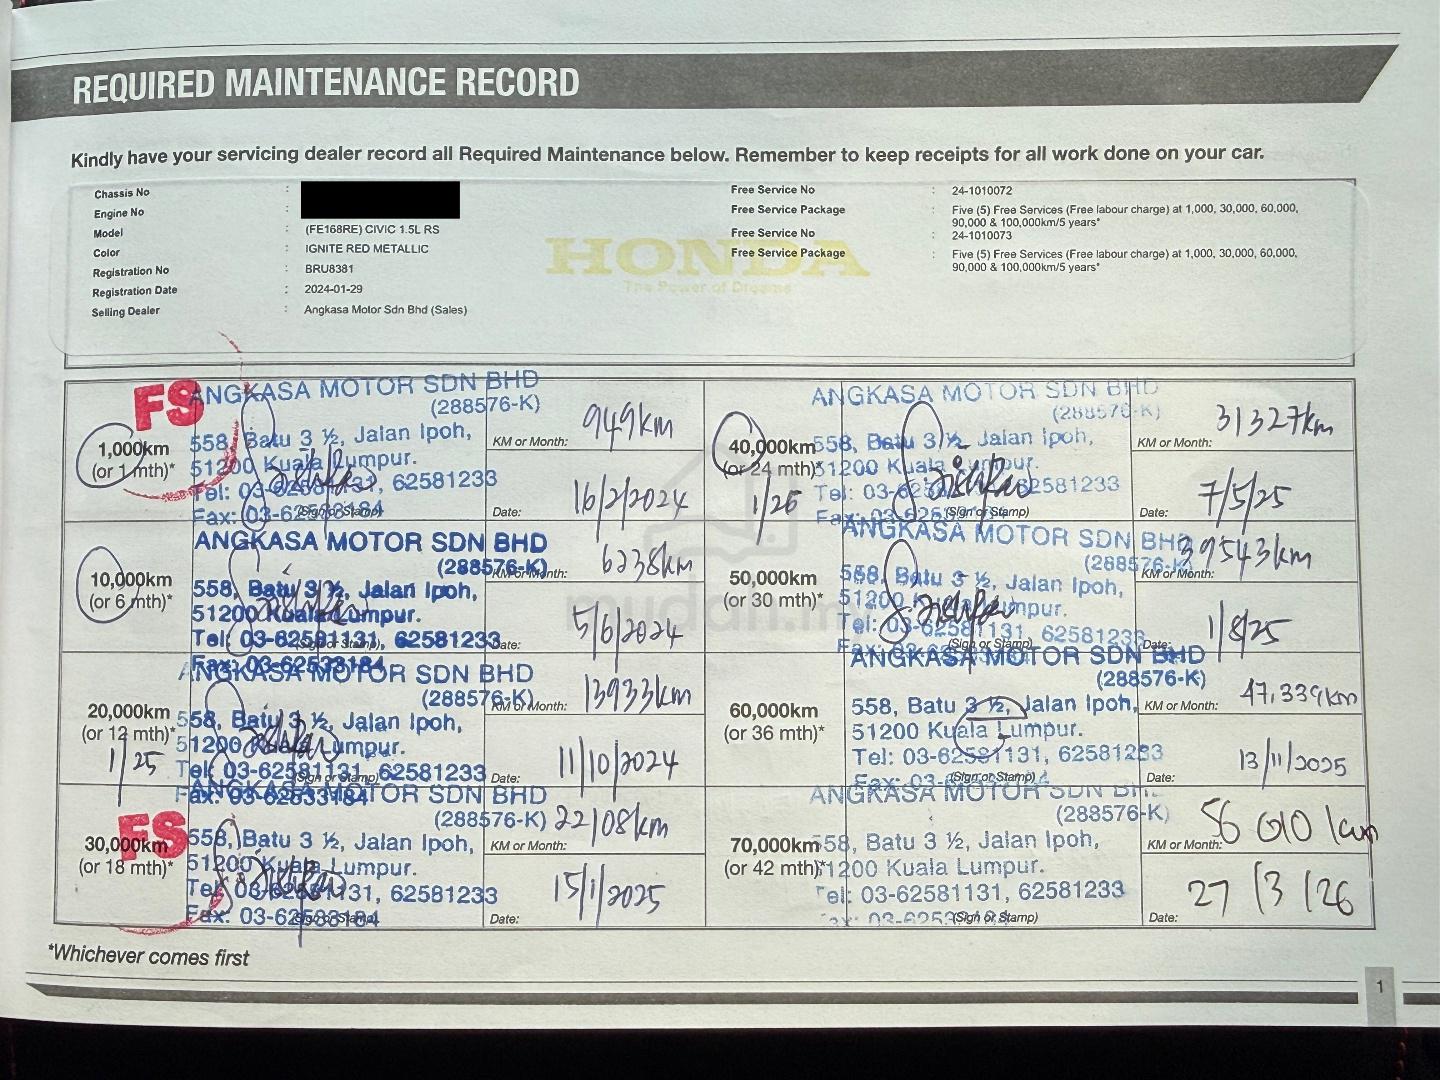 REQUIRED MAINTENANCE RECORD
Kindly have your servicing dealer record all Required Maintenance below. Remember to keep receipts for all work done on your car.
Chassis No :
Engine No :
Model : (FE168RE) CIVIC 1.5L RS
Color : IGNITE RED METALLIC
Registration No : BRU8381
Registration Date : 2024-01-29
Selling Dealer : Angkasa Motor Sdn Bhd (Sales)
Free Service No : 24-1010072
Free Service Package : Five (5) Free Services (Free labour charge) at 1,000, 30,000, 60,000,
90,000 & 100,000km/5 years*
Free Service No : 24-1010073
Free Service Package : Five (5) Free Services (Free labour charge) at 1,000, 30,000, 60,000,
90,000 & 100,000km/5 years*
HONDA
The Power of Dreams
FS
1,000km
(or 1 mth)*
ANGKASA MOTOR SDN BHD
(288576-K)
558, Batu 3 ½, Jalan Ipoh,
51200 Kuala Lumpur.
Tel: 03-62581131, 62581233
Fax: 03-62533184
(Sign or Stamp)
KM or Month: 949km
Date: 16/2/2024
10,000km
(or 6 mth)*
ANGKASA MOTOR SDN BHD
(288576-K)
558, Batu 3 ½, Jalan Ipoh,
51200 Kuala Lumpur.
Tel: 03-62581131, 62581233
Fax: 03-62533184
(Sign or Stamp)
KM or Month: 6238km
Date: 5/6/2024
20,000km
(or 12 mth)*
1/25
ANGKASA MOTOR SDN BHD
(288576-K)
558, Batu 3 ½, Jalan Ipoh,
51200 Kuala Lumpur.
Tel: 03-62581131, 62581233
Fax: 03-62533184
(Sign or Stamp)
KM or Month: 13933km
Date: 11/10/2024
FS
30,000km
(or 18 mth)*
ANGKASA MOTOR SDN BHD
(288576-K)
558, Batu 3 ½, Jalan Ipoh,
51200 Kuala Lumpur.
Tel: 03-62581131, 62581233
Fax: 03-62533184
(Sign or Stamp)
KM or Month: 22108km
Date: 15/1/2025
40,000km
(or 24 mth)*
1/26
ANGKASA MOTOR SDN BHD
(288576-K)
558, Batu 3 ½, Jalan Ipoh,
51200 Kuala Lumpur.
Tel: 03-62581131, 62581233
(Sign or Stamp)
KM or Month: 31327km
Date: 7/5/25
50,000km
(or 30 mth)*
ANGKASA MOTOR SDN BHD
(288576-K)
558, Batu 3 ½, Jalan Ipoh,
51200 Kuala Lumpur.
Tel: 03-62581131, 62581233
(Sign or Stamp)
KM or Month: 39543km
Date: 1/8/25
60,000km
(or 36 mth)*
ANGKASA MOTOR SDN BHD
(288576-K)
558, Batu 3 ½, Jalan Ipoh,
51200 Kuala Lumpur.
Tel: 03-62581131, 62581233
(Sign or Stamp)
KM or Month: 47,339km
Date: 13/11/2025
70,000km
(or 42 mth)*
ANGKASA MOTOR SDN BHD
(288576-K)
558, Batu 3 ½, Jalan Ipoh,
51200 Kuala Lumpur.
Tel: 03-62581131, 62581233
(Sign or Stamp)
KM or Month: 56010 km
Date: 27/3/26
mudah.my
*Whichever comes first
1